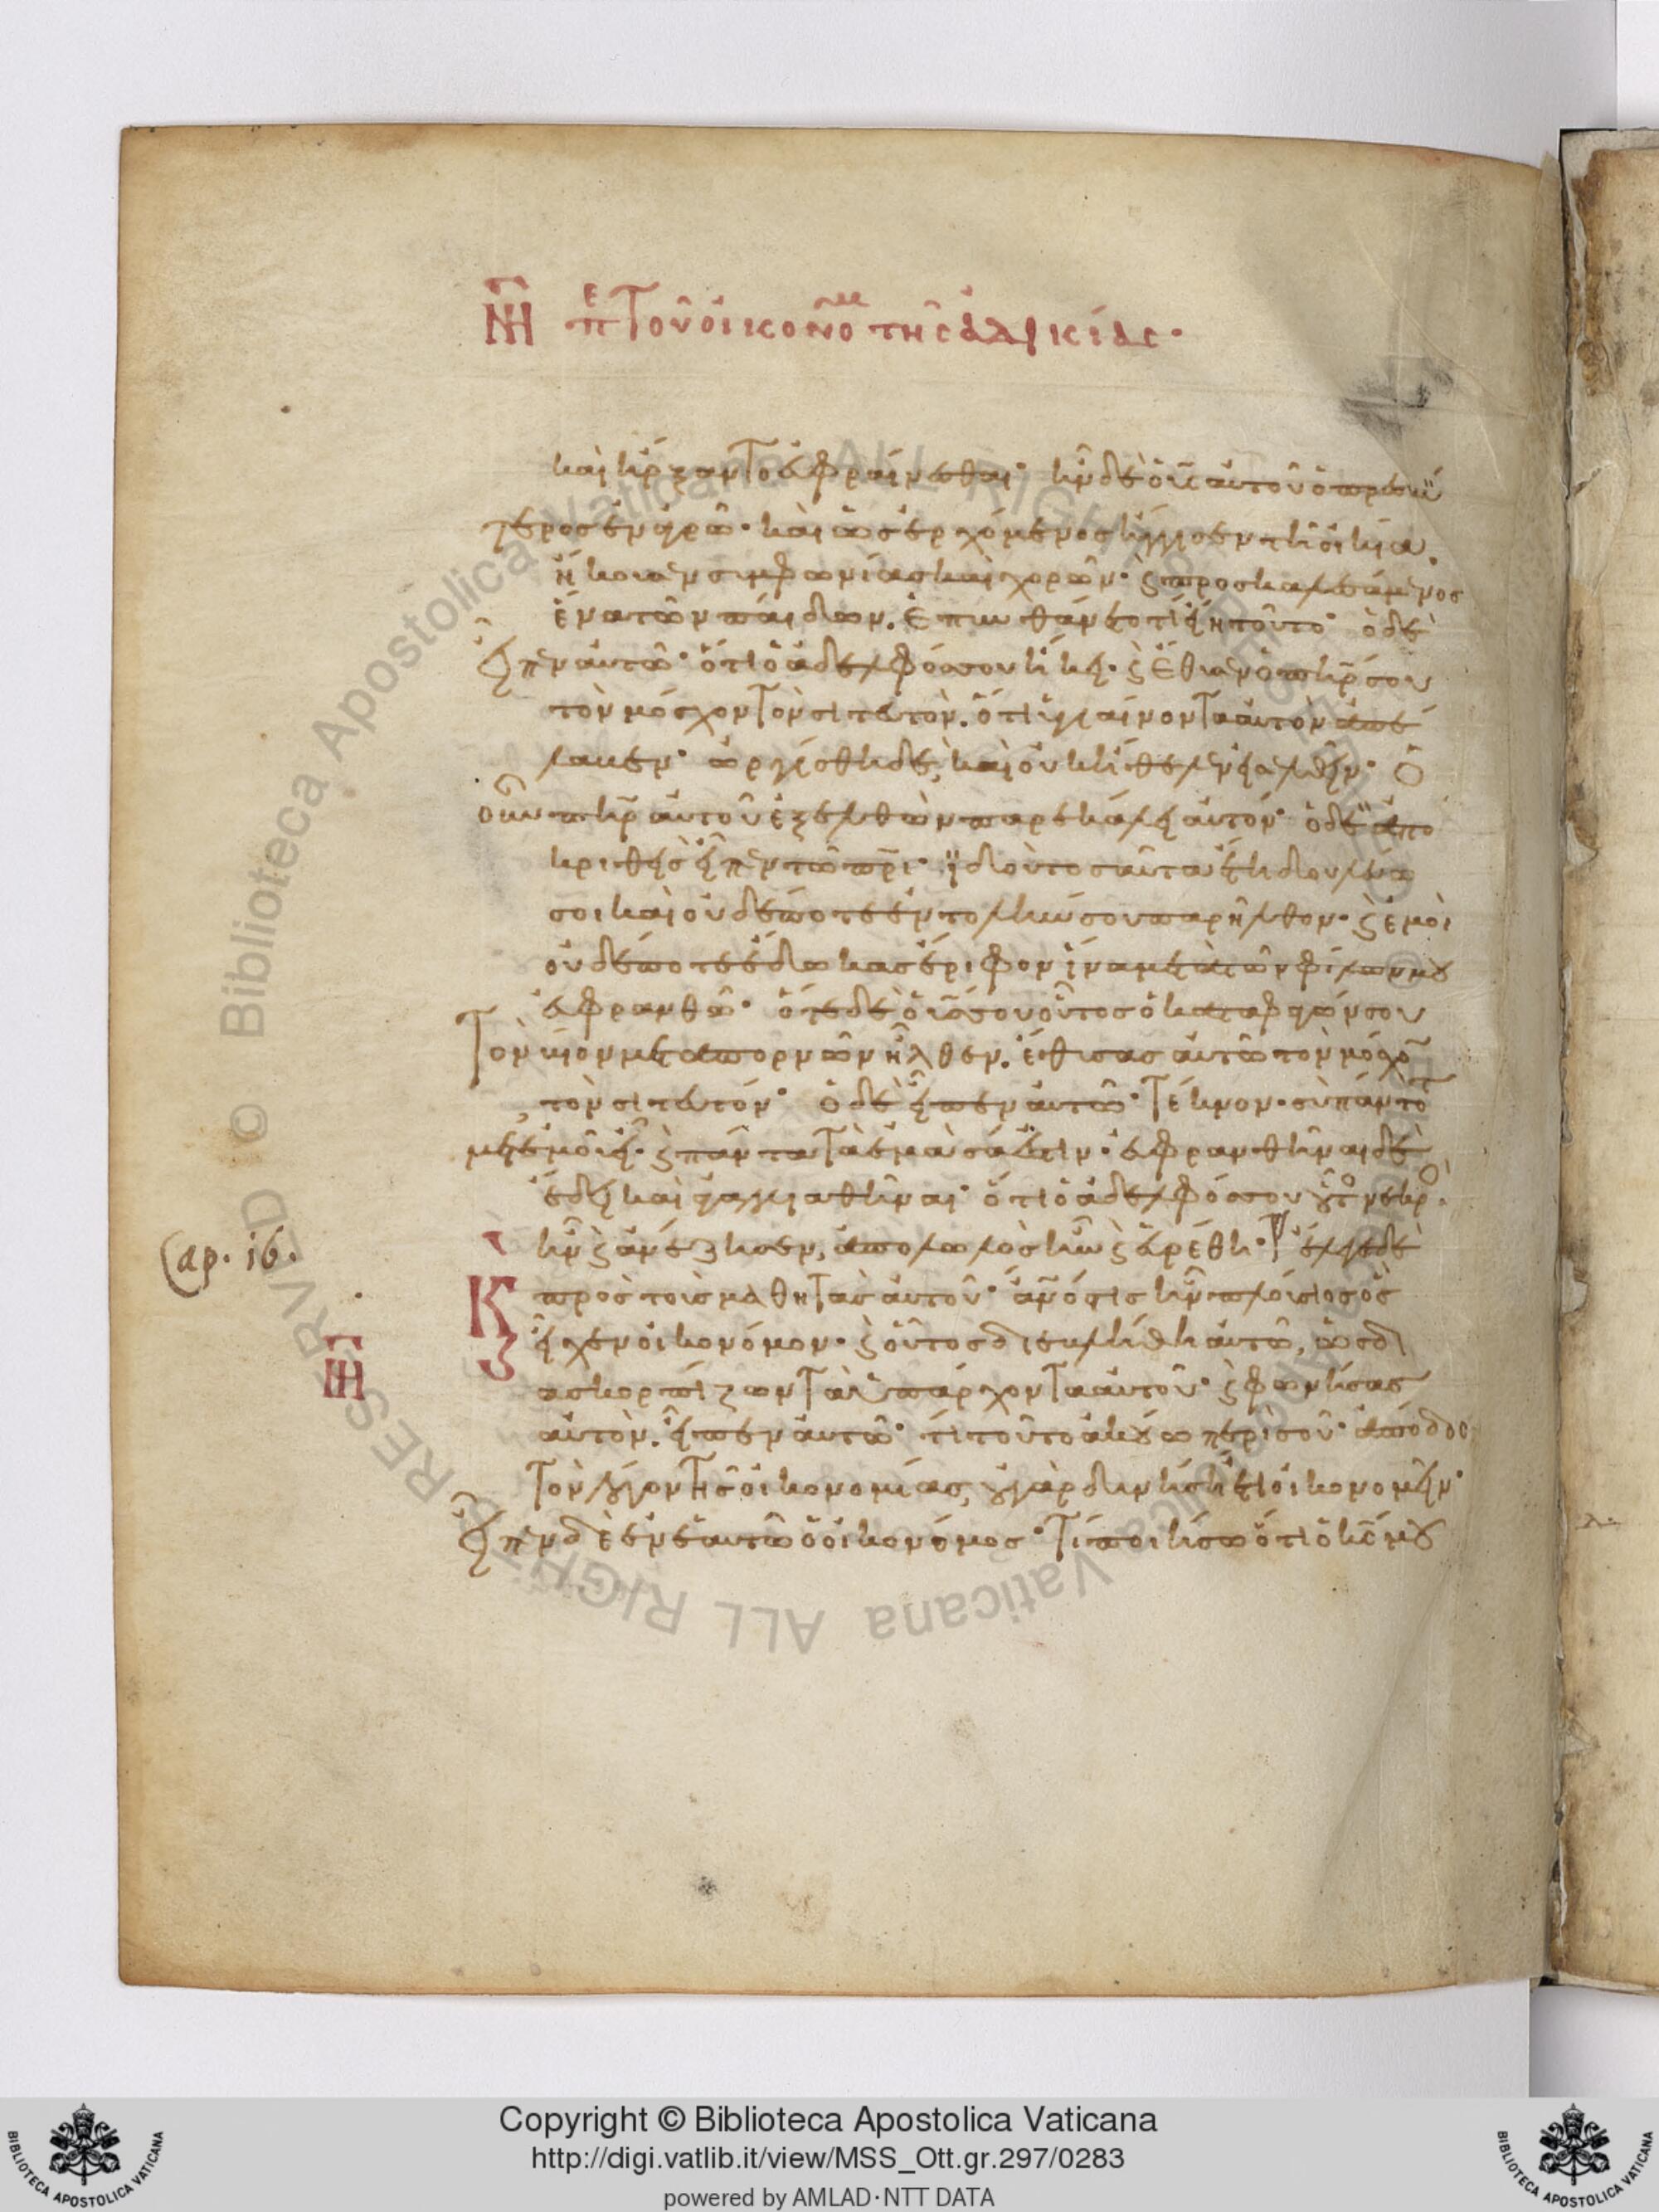 ΝΗ πε τοῦ οἰκονόμ τῆς ἀδικίας·
καὶ ἤρξαντο εὐφραίνεσθαι· ἦν δὲ ὁ υἱς αὐτοῦ ὁ πρεσβύ
τερος ἐν ἀγρῶ· καὶ ὡς ἐρχόμενος ἤγγισεν τῆ οἰκία.
ἤκουσεν συμφωνίας καὶ χορῶν· ϗ προσκαλεσάμενος
ἕνα τῶν παίδων. ἐπυνθάνετο τί εἴη τοῦτο· ὁ δὲ
εἶπεν αὐτῶ· ὅτι ὁ ἀδελφός σου ἥκει· ϗ ἔθυσεν ὁ πηρ σου
τὸν μόσχον τὸν σιτευτὸν. ὅτι ὑγιαίνοντα αὐτὸν ἀπέ
λαβεν· ὠργίσθη δὲ, καὶ οὐκ ἤθελεν εἰσελθεῖν· Ὁ
οὖν πηρ αὐτοῦ ἐξελθὼν παρεκάλει αὐτόν· ὁ δὲ ἀπο
κριθεὶς εἶπεν τῶ πρι· ἰδοὺ τοσαῦτα ἔτη δουλεύω
σοι καὶ οὐδέποτε ἐντολήν σου παρῆλθον· ϗ ἐμοὶ
οὐδέποτε ἔδωκας ἔριφον ἵνα μετὰ τῶν φίλων μου
εὐφρανθῶ· ὅτε δὲ ὁ υἱός σου οὗτος ὁ καταφαγών σου
τὸν βίον μετὰ πορνῶν ἦλθεν. ἔθυσας αὐτῶ τὸν μόσχο
τὸν σιτευτόν· ὁ δὲ εἶπεν αὐτῶ· τέκνον· σὺ πάντοτ
μετ ἐμοῦ εἶ· ϗ πάντα τὰ ἐμὰ σά ἐστιν· εὐφρανθῆναι δὲ
ἔδει καὶ ἀγαλλιαθῆναι· ὅτι ὁ ἀδελφός σου οὗτο νεκρο
ἦν ϗ ἀνέζησεν, ἀπολωλὸς ἦν ϗ εὑρέθη· ἔλεγε δὲ
Cap. 16.
πρὸς τοὺς μαθητὰς αὐτοῦ· ἄνος τις ἦν πλούσιος ὃς
Κ
εἶχεν οἰκονόμον· ϗ οὗτος διεβλήθη αὐτῶ, ὡς δι
ΝΗ
ασκορπίζων τὰ ὑπάρχοντα αὐτοῦ· ϗ φωνήσας
αὐτὸν. εἶπεν αὐτῶ· τί τοῦτο ἀκούω περὶ σοῦ· ἀπόδος
τὸν λόγον τῆς οἰκονομίας, οὐ γὰρ δυνήση ἔτι οἰκονομεῖν·
εἶπεν δὲ ἐν ἑαυτῶ ὁ οἰκονόμος· τί ποιήσω ὅτι ὁ κς μου
Copyright © Biblioteca Apostolica Vaticana
http://digi.vatlib.it/view/MSS_Ott.gr.297/0283
powered by AMLAD·NTT DATA
BIBLIOTECA APOSTOLICA VATICANA
BIBLIOTECA APOSTOLICA VATICANA